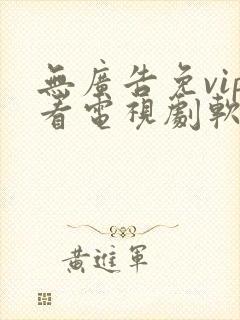 無廣告免vip
看電視劇軟
黃進軍